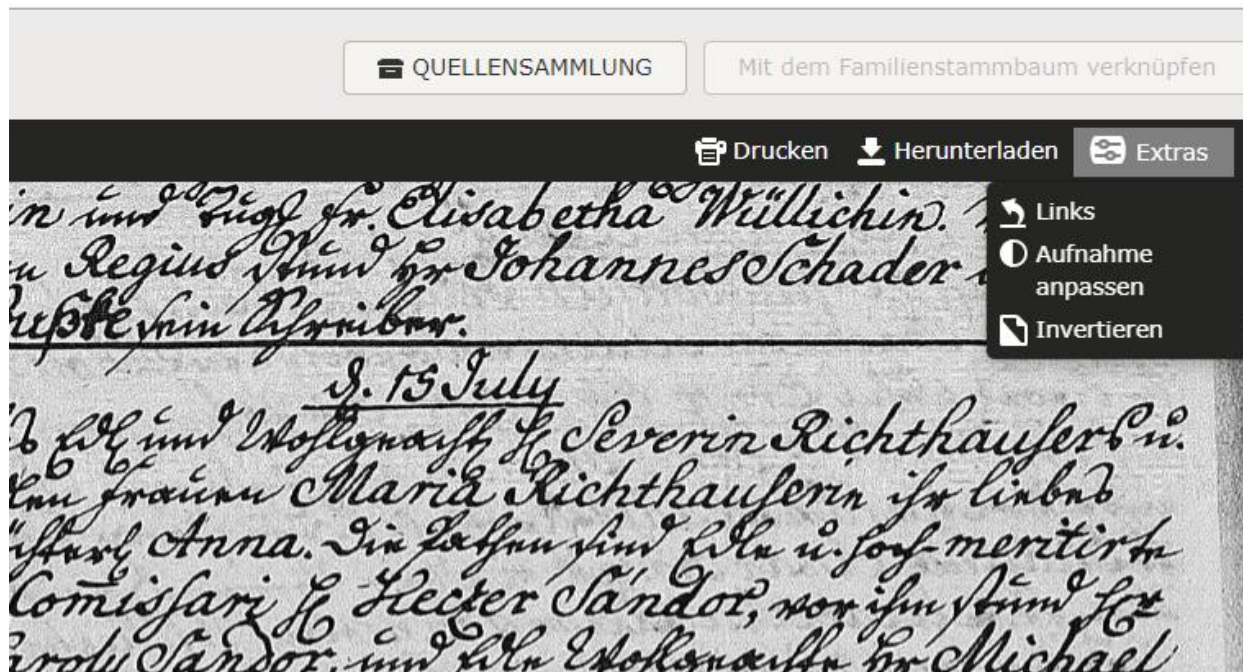 QUELLENSAMMLUNG
Mit dem Familienstammbaum verknüpfen
Drucken
Herunterladen
Extras
Links
Aufnahme
anpassen
Invertieren
in und Tugl fr. Elisabetha Wüllichin.
Regius stund Hr Johannes Schader
sein Schreiber.
d. 15 July
Edl und Wohlgeacht H Severin Richthausers u.
Frauen Maria Richthauserin ihr liebes
Anna. Die Pathen sind Edle u. hoch-meritirte
Comissari H Hecter Sándor, vor ihm stund Her
Sándor, und Edle Wohlgeachte Hr Michael